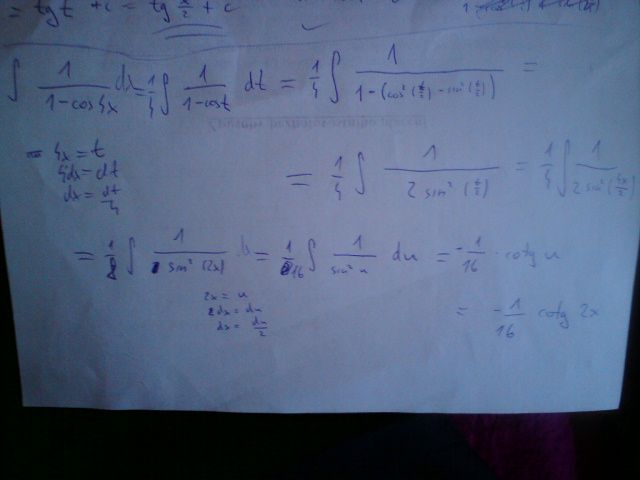 = tg t + c = tg x/2 + c
∫ 1/(1-cos4x) dx = 1/4 ∫ 1/(1-cos t) dt = 1/4 ∫ 1/(1-(cos²(t/2)-sin²(t/2))) =
4x = t
4dx = dt
dx = dt/4
= 1/4 ∫ 1/(2 sin²(t/2)) = 1/4 ∫ 1/(2 sin²(4x/2))
= 1/8 ∫ 1/(sin²(2x)) = 1/16 ∫ 1/(sin² u) du = -1/16 · cotg u
2x = u
2dx = du
dx = du/2
= -1/16 cotg 2x